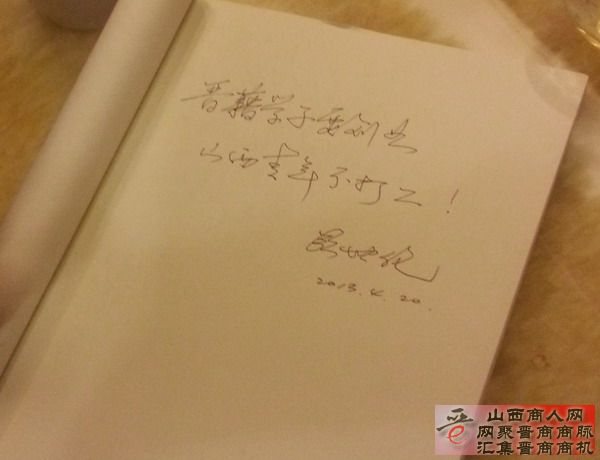 晋籍学子要创业
山西青年不打工！
2013.4.20.
晋e
山西商人网
网聚晋商商脉
汇集晋商商机